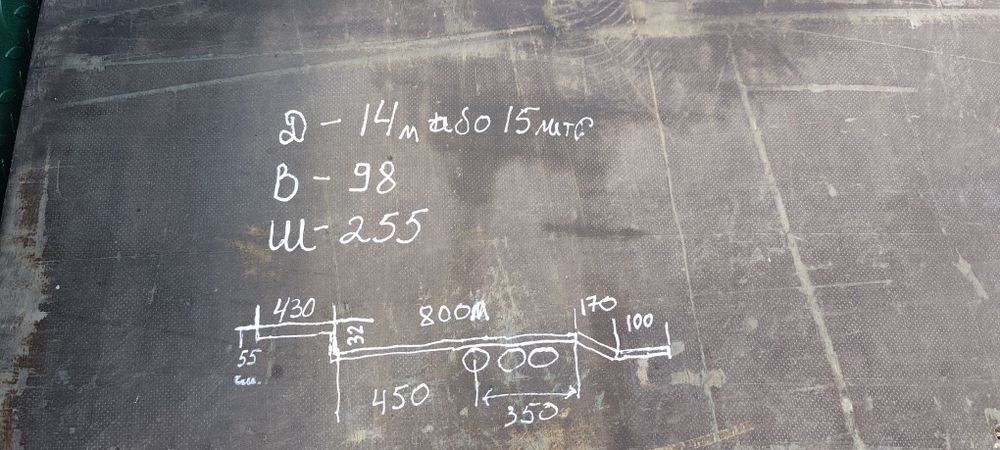 Д - 14 м або 15 мит
В - 98
Ш - 255
430
800м
170
100
32
55
450
350